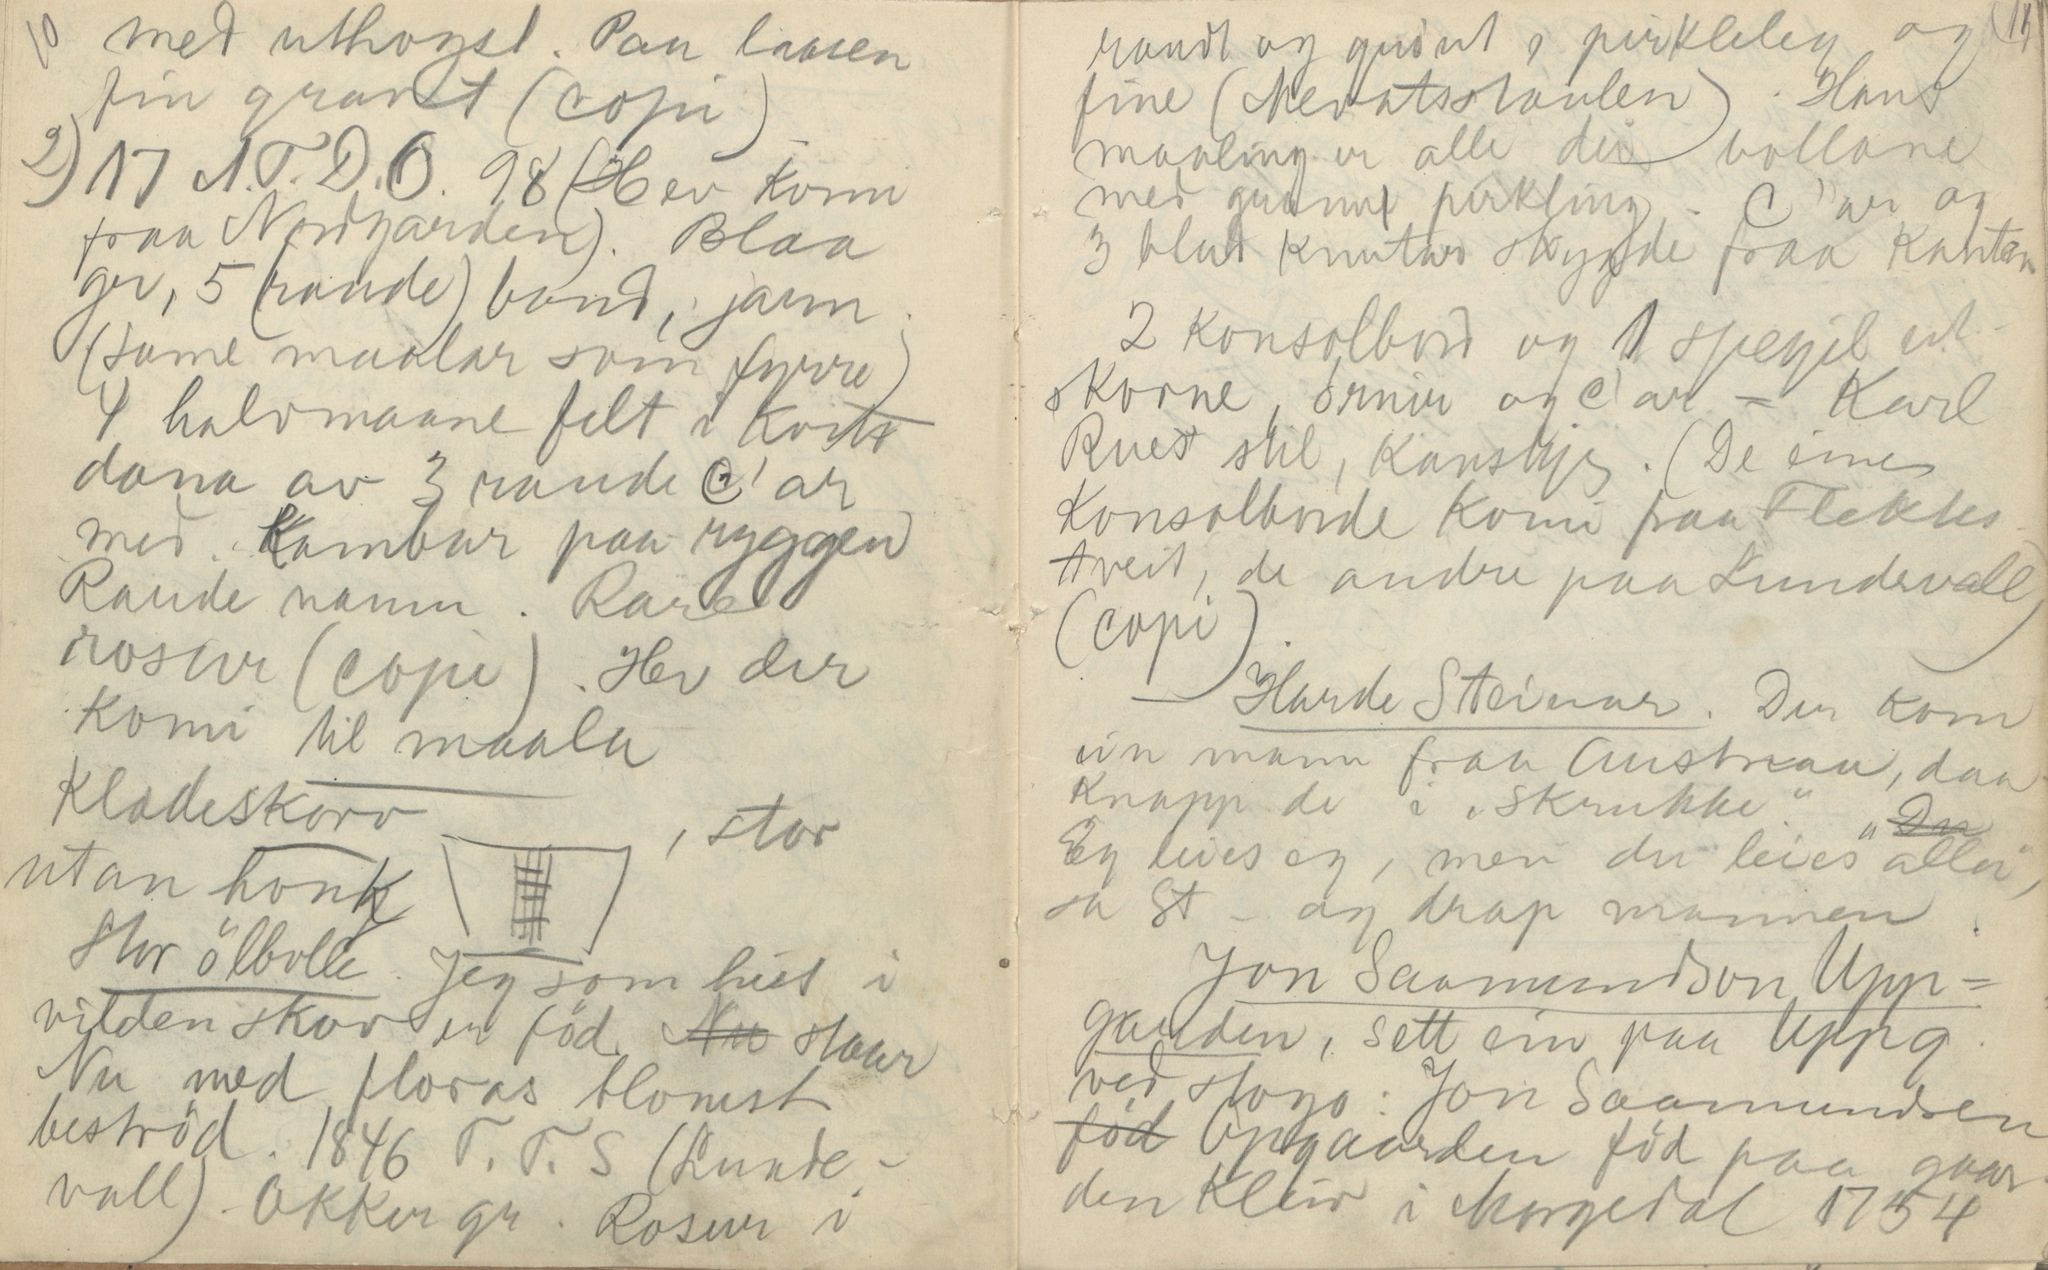 10
med uthogst. Paa laasen
fin gravet (copi)
2) 17 A.T.D.O. 98 (Hev komi
fraa Nordgarden). Blaa
gr, 5 (raude) band, jarn.
(same maalar som fyrre)
4 halvmaane felt i kvite
dana av 3 raude C'ar
med kambar paa ryggen
Raude namn. Rare
rosur (copi). Hev der
komi til maala
Kladeskorv
, stor
utan honk
Stor ölbolle. Jeg som hist i
vilden skov er föd. Nu staar
Nu med floras blomst
beströd. 1846 T.T.S (Lunde-
vall). Okker gr. Rosur i
11
raudt og grönt, pirkleleg og
fine (Mevatsstaulen). Hans
maaling er alle dei bollane
med grannt pirkling. C'ar og
3 blad knutar skygde fraa kanten
2 Konsolbord og 1 spegjil ut-
skorne, örnir og C'ar - Karl
Rues stil, kanskje. (De eine
Konsolborde komi fraa Flekkes-
tveit, de andre paa Lundevall
(copi).
- Harde Steinar. Der kom
ein mann fraa Austmaa, daa
knapp de i "Skrukke". "Du
Eg leies eg, men du leies aller",
sa St - og drap mannen.
Jon Saamundson Upp=
garden, sett ein paa Uppg.
ved stogo: Jon Saamundsen
föd Opgaarden föd paa gaar-
den Kleiv i Morgedal 1754